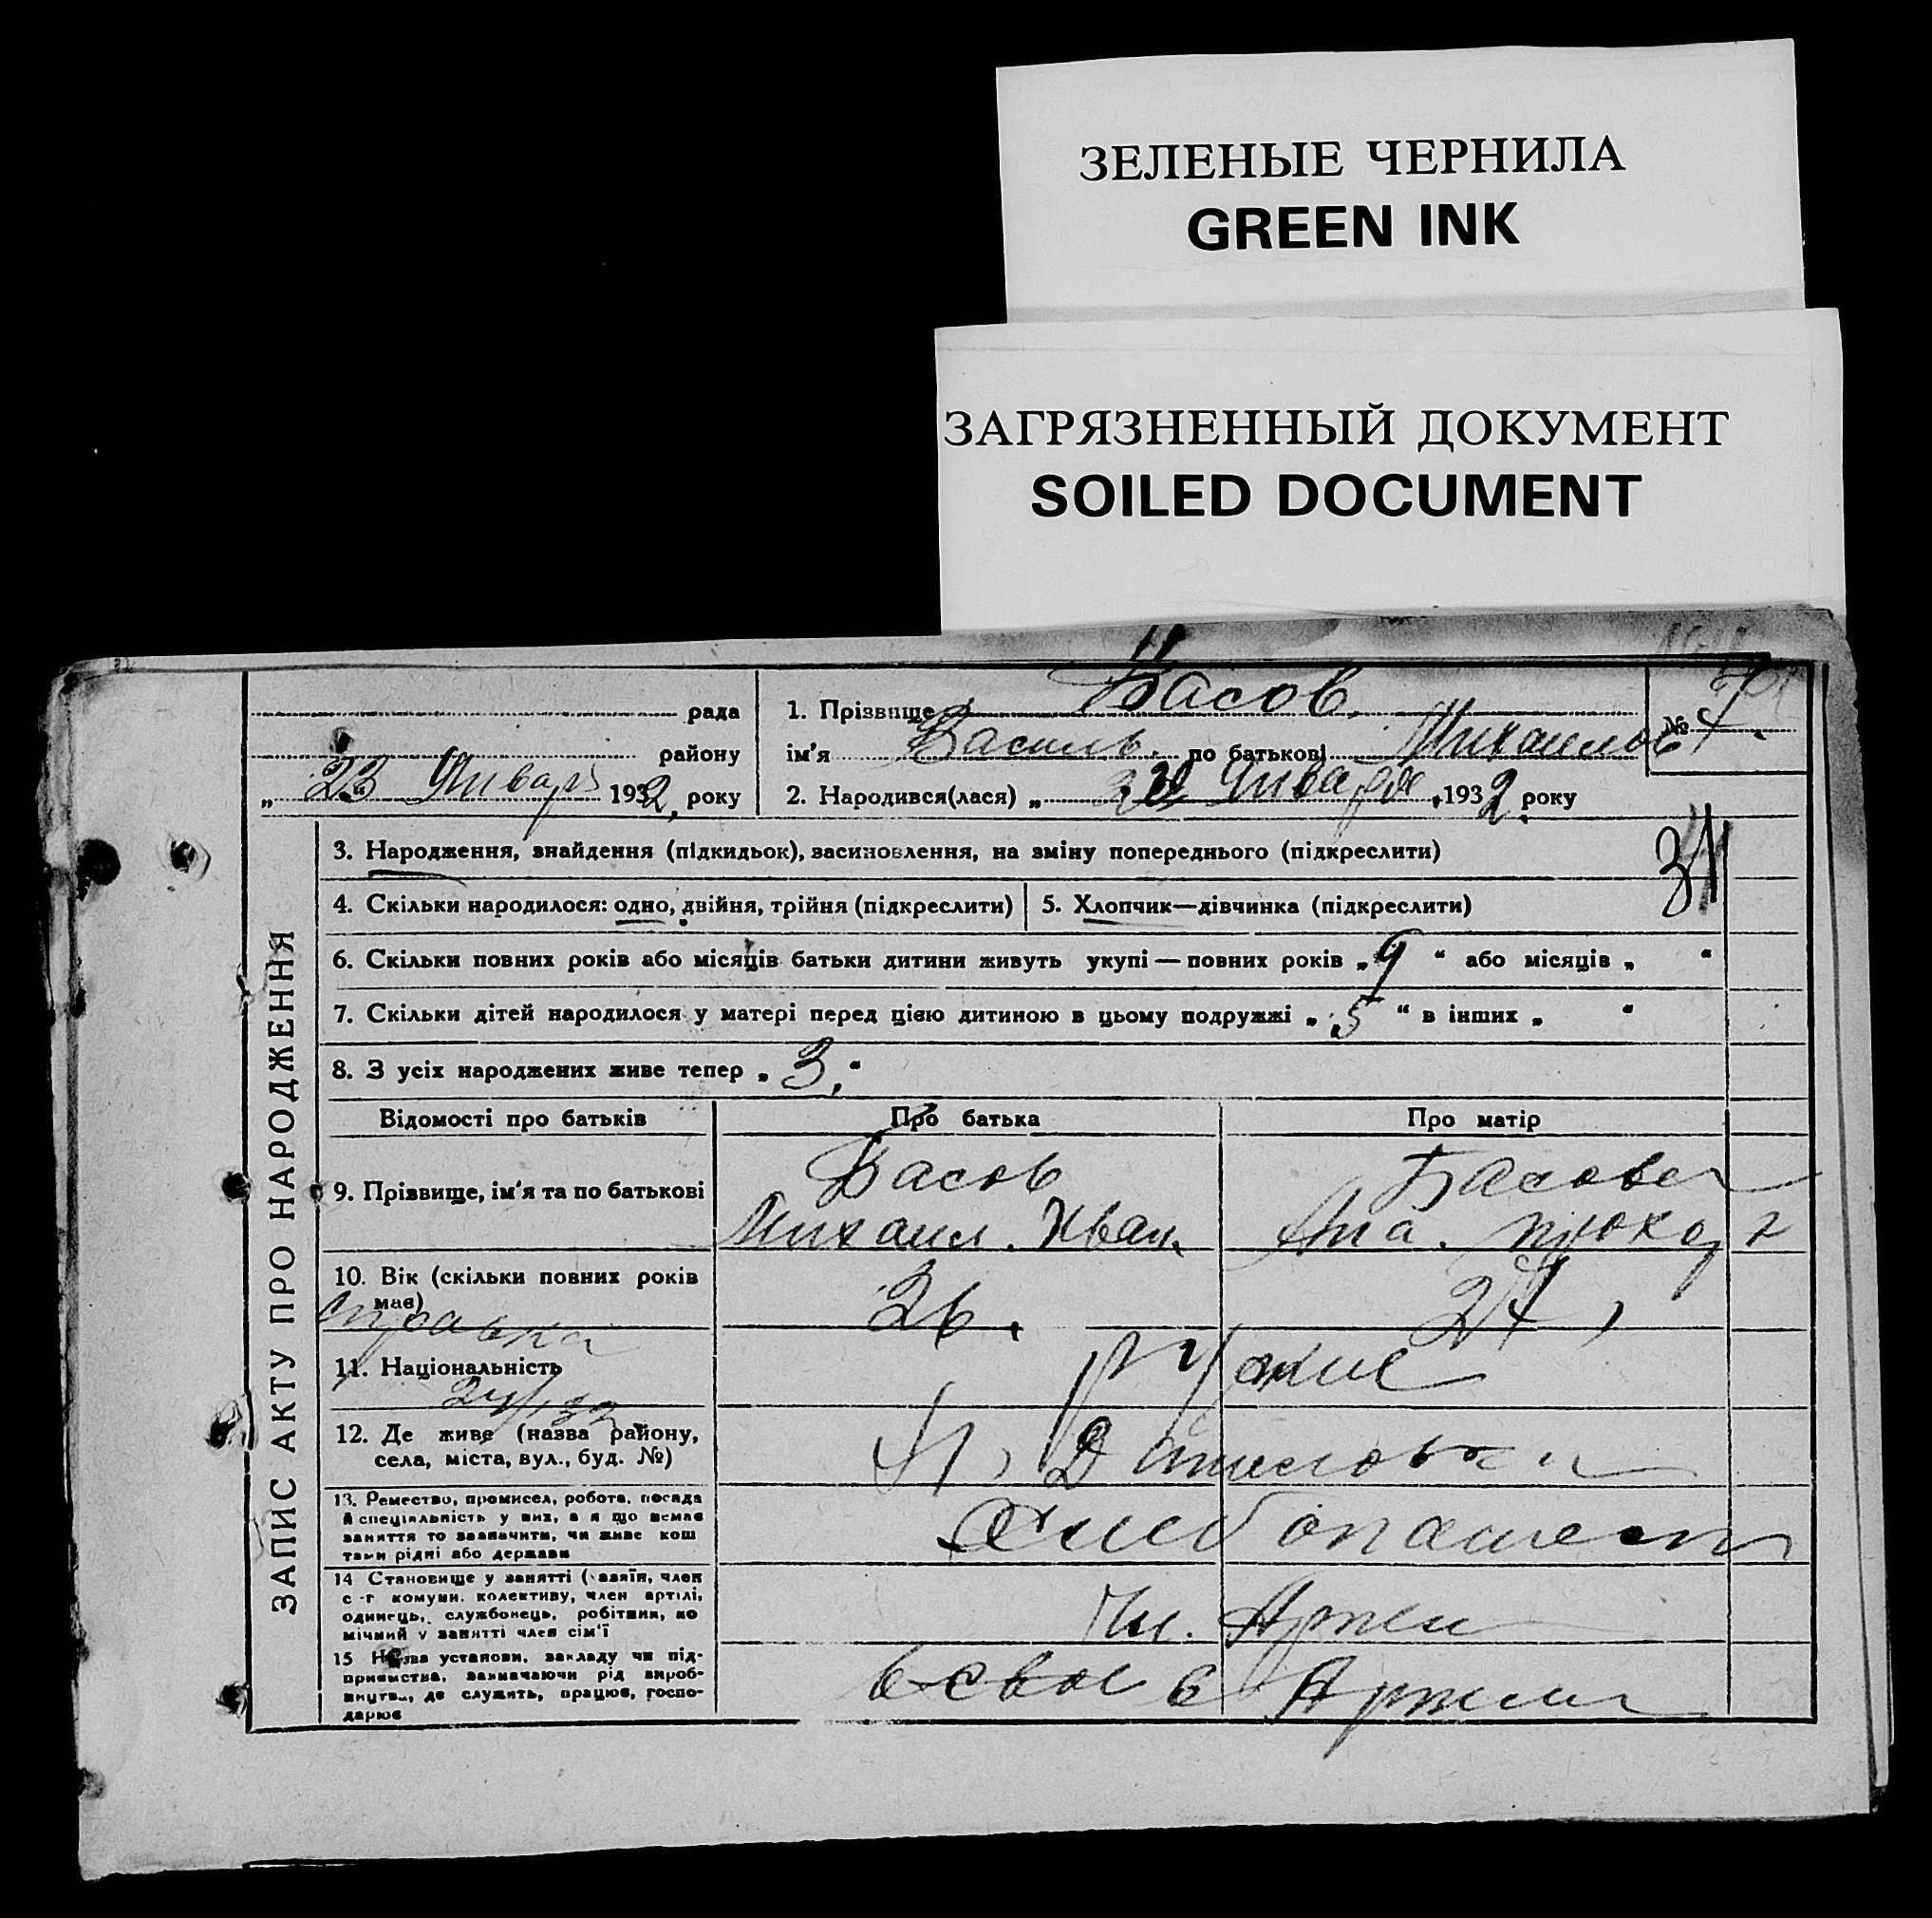 ЗЕЛЕНЫЕ ЧЕРНИЛА
GREEN INK
ЗАГРЯЗНЕННЫЙ ДОКУМЕНТ
SOILED DOCUMENT
ЗАПИС АКТУ ПРО НАРОДЖЕННЯ
рада
району
„ 23 Январь 1932 року
1. Прізвище Басов
ім'я Василь по батькові Михаилов
№ 7
2. Народився(лася) „ Января 1932 року
31
3. Народження, знайдення (підкидьок), засиновлення, на зміну попереднього (підкреслити)
4. Скільки народилося: одно, двійня, трійня (підкреслити)
5. Хлопчик—дівчинка (підкреслити)
6. Скільки повних років або місяців батьки дитини живуть укупі — повних років „ 9 “ або місяців „ “
7. Скільки дітей народилося у матері перед цією дитиною в цьому подружжі „ 5 “ в інших „ “
8. З усіх народжених живе тепер „ 3 “
Відомості про батьків
Про батька
Про матір
9. Прізвище, ім'я та по батькові
Басов
Михаил. Иван.
Басова
10. Вік (скільки повних років має)
26.
Справка
11. Національність
12. Де живе (назва району, села, міста, вул., буд. №)
13. Ремество, промисел, робота, посада
й спеціяльність у них, а я що немає
заняття то зазначити, чи живе кош
тами рідні або держави
Хлебопашест
14 Становище у занятті (хазяїн, член
с-г комуни, колективу, член артілі,
одинець, службовець, робітник, по
мічний у занятті член сім'ї
Чл. Артели
15 Назва установи, закладу чи під-
приємства, зазначаючи рід вироб-
ництва, де служить, працює, госпо-
дарює
в Артели